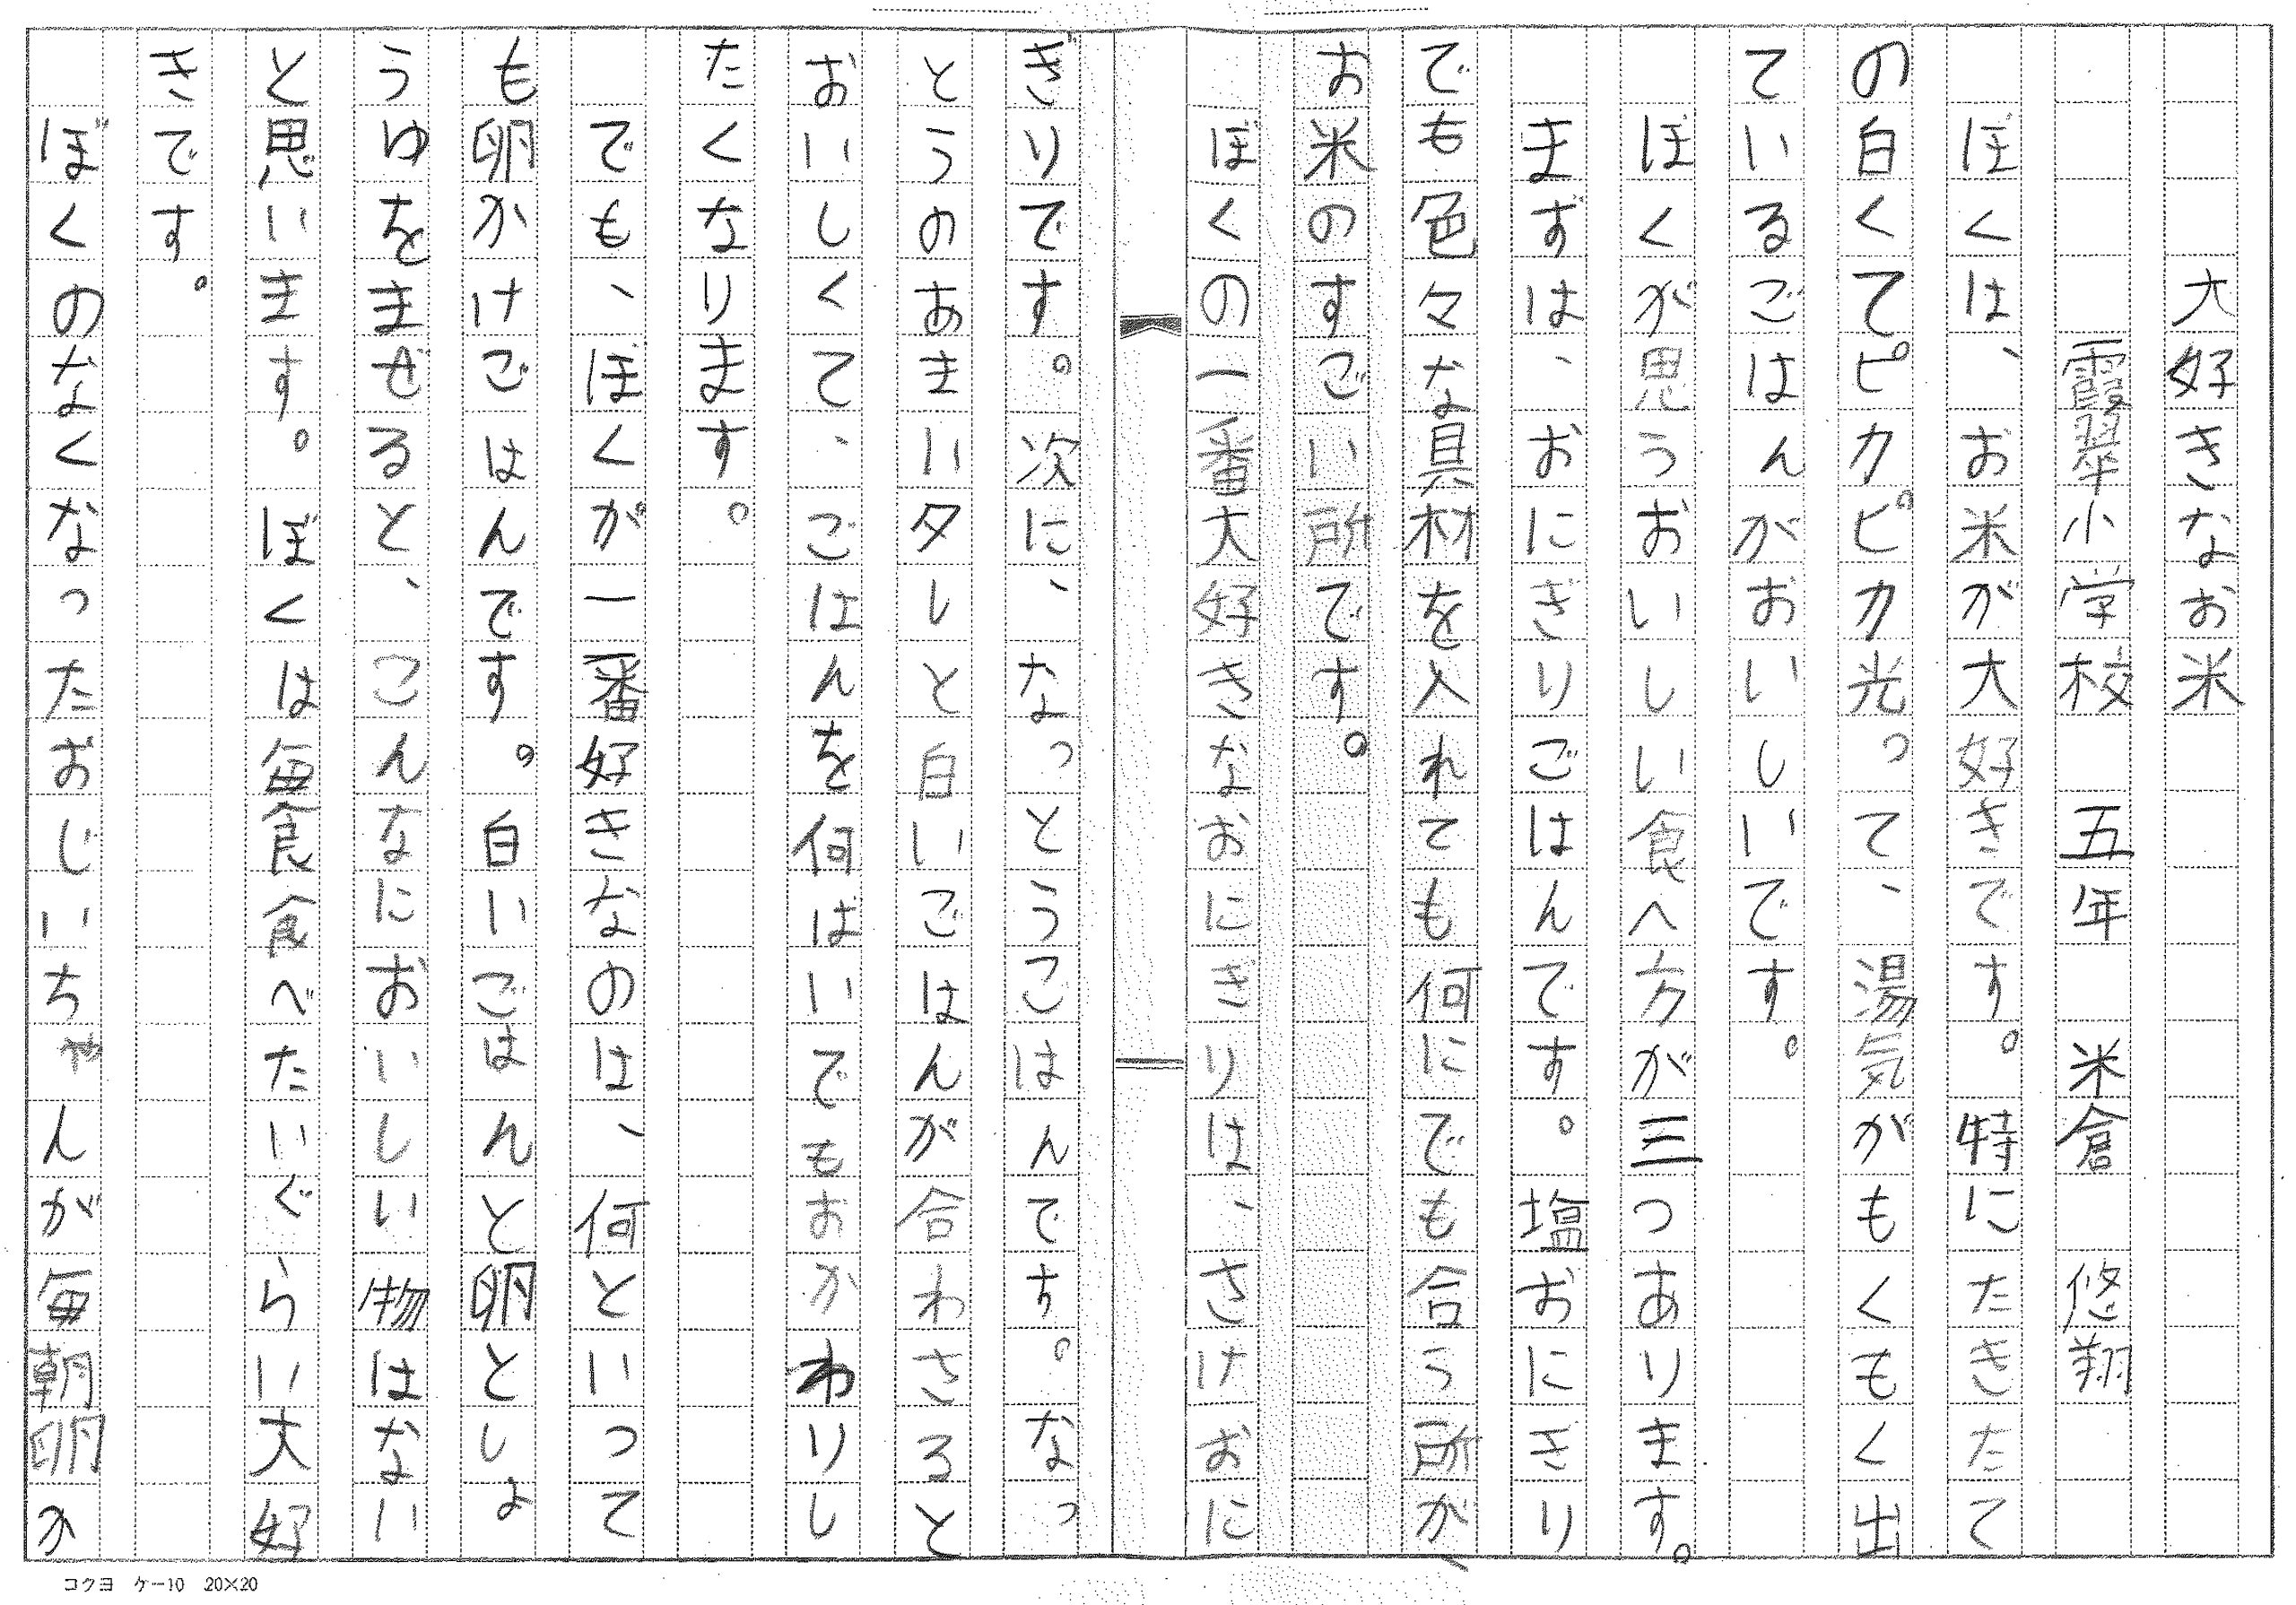 大好きなお米
霞翠小学校　五年　米倉　悠翔
ぼくは、お米が大好きです。特にたきたて
の白くてピカピカ光って、湯気がもくもく出
ているごはんがおいしいです。
ぼくが思うおいしい食べ方が三つあります。
まずは、おにぎりごはんです。塩おにぎり
でも色々な具材を入れても何にでも合う所が、
お米のすごい所です。
ぼくの一番大好きなおにぎりは、さけおに
ぎりです。次に、なっとうごはんです。なっ
とうのあまいタレと白いごはんが合わさると
おいしくて、ごはんを何はいでもおかわりし
たくなります。
でも、ぼくが一番好きなのは、何といって
も卵かけごはんです。白いごはんと卵としょ
うゆをまぜると、こんなにおいしい物はない
と思います。ぼくは毎食食べたいぐらい大好
きです。
ぼくのなくなったおじいちゃんが毎朝卵か
コクヨ　ケー10　20×20